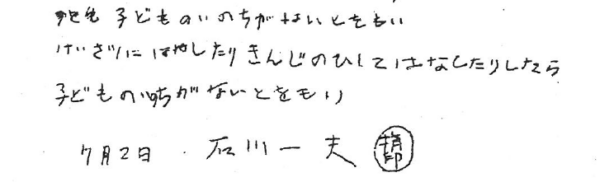 子どものいのちがないとをもい
けいさツにはなしたりきんじのひとにはなしたりしたら
子どものいのちがないとをもい
7月2日 . 石川一夫 指印